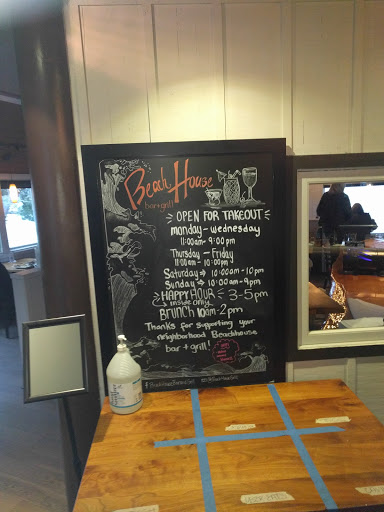 Beach House
bar + grill
OPEN FOR TAKEOUT
monday - wednesday
11:00am - 9:00pm
Thursday - Friday
11:00am - 10:00pm
Saturday → 10:00am - 10pm
Sunday → 10:00am - 9pm
HAPPY HOUR 3-5pm
inside only
BRUNCH 10am - 2pm
Thanks for supporting your
neighborhood Beachhouse
bar + grill!